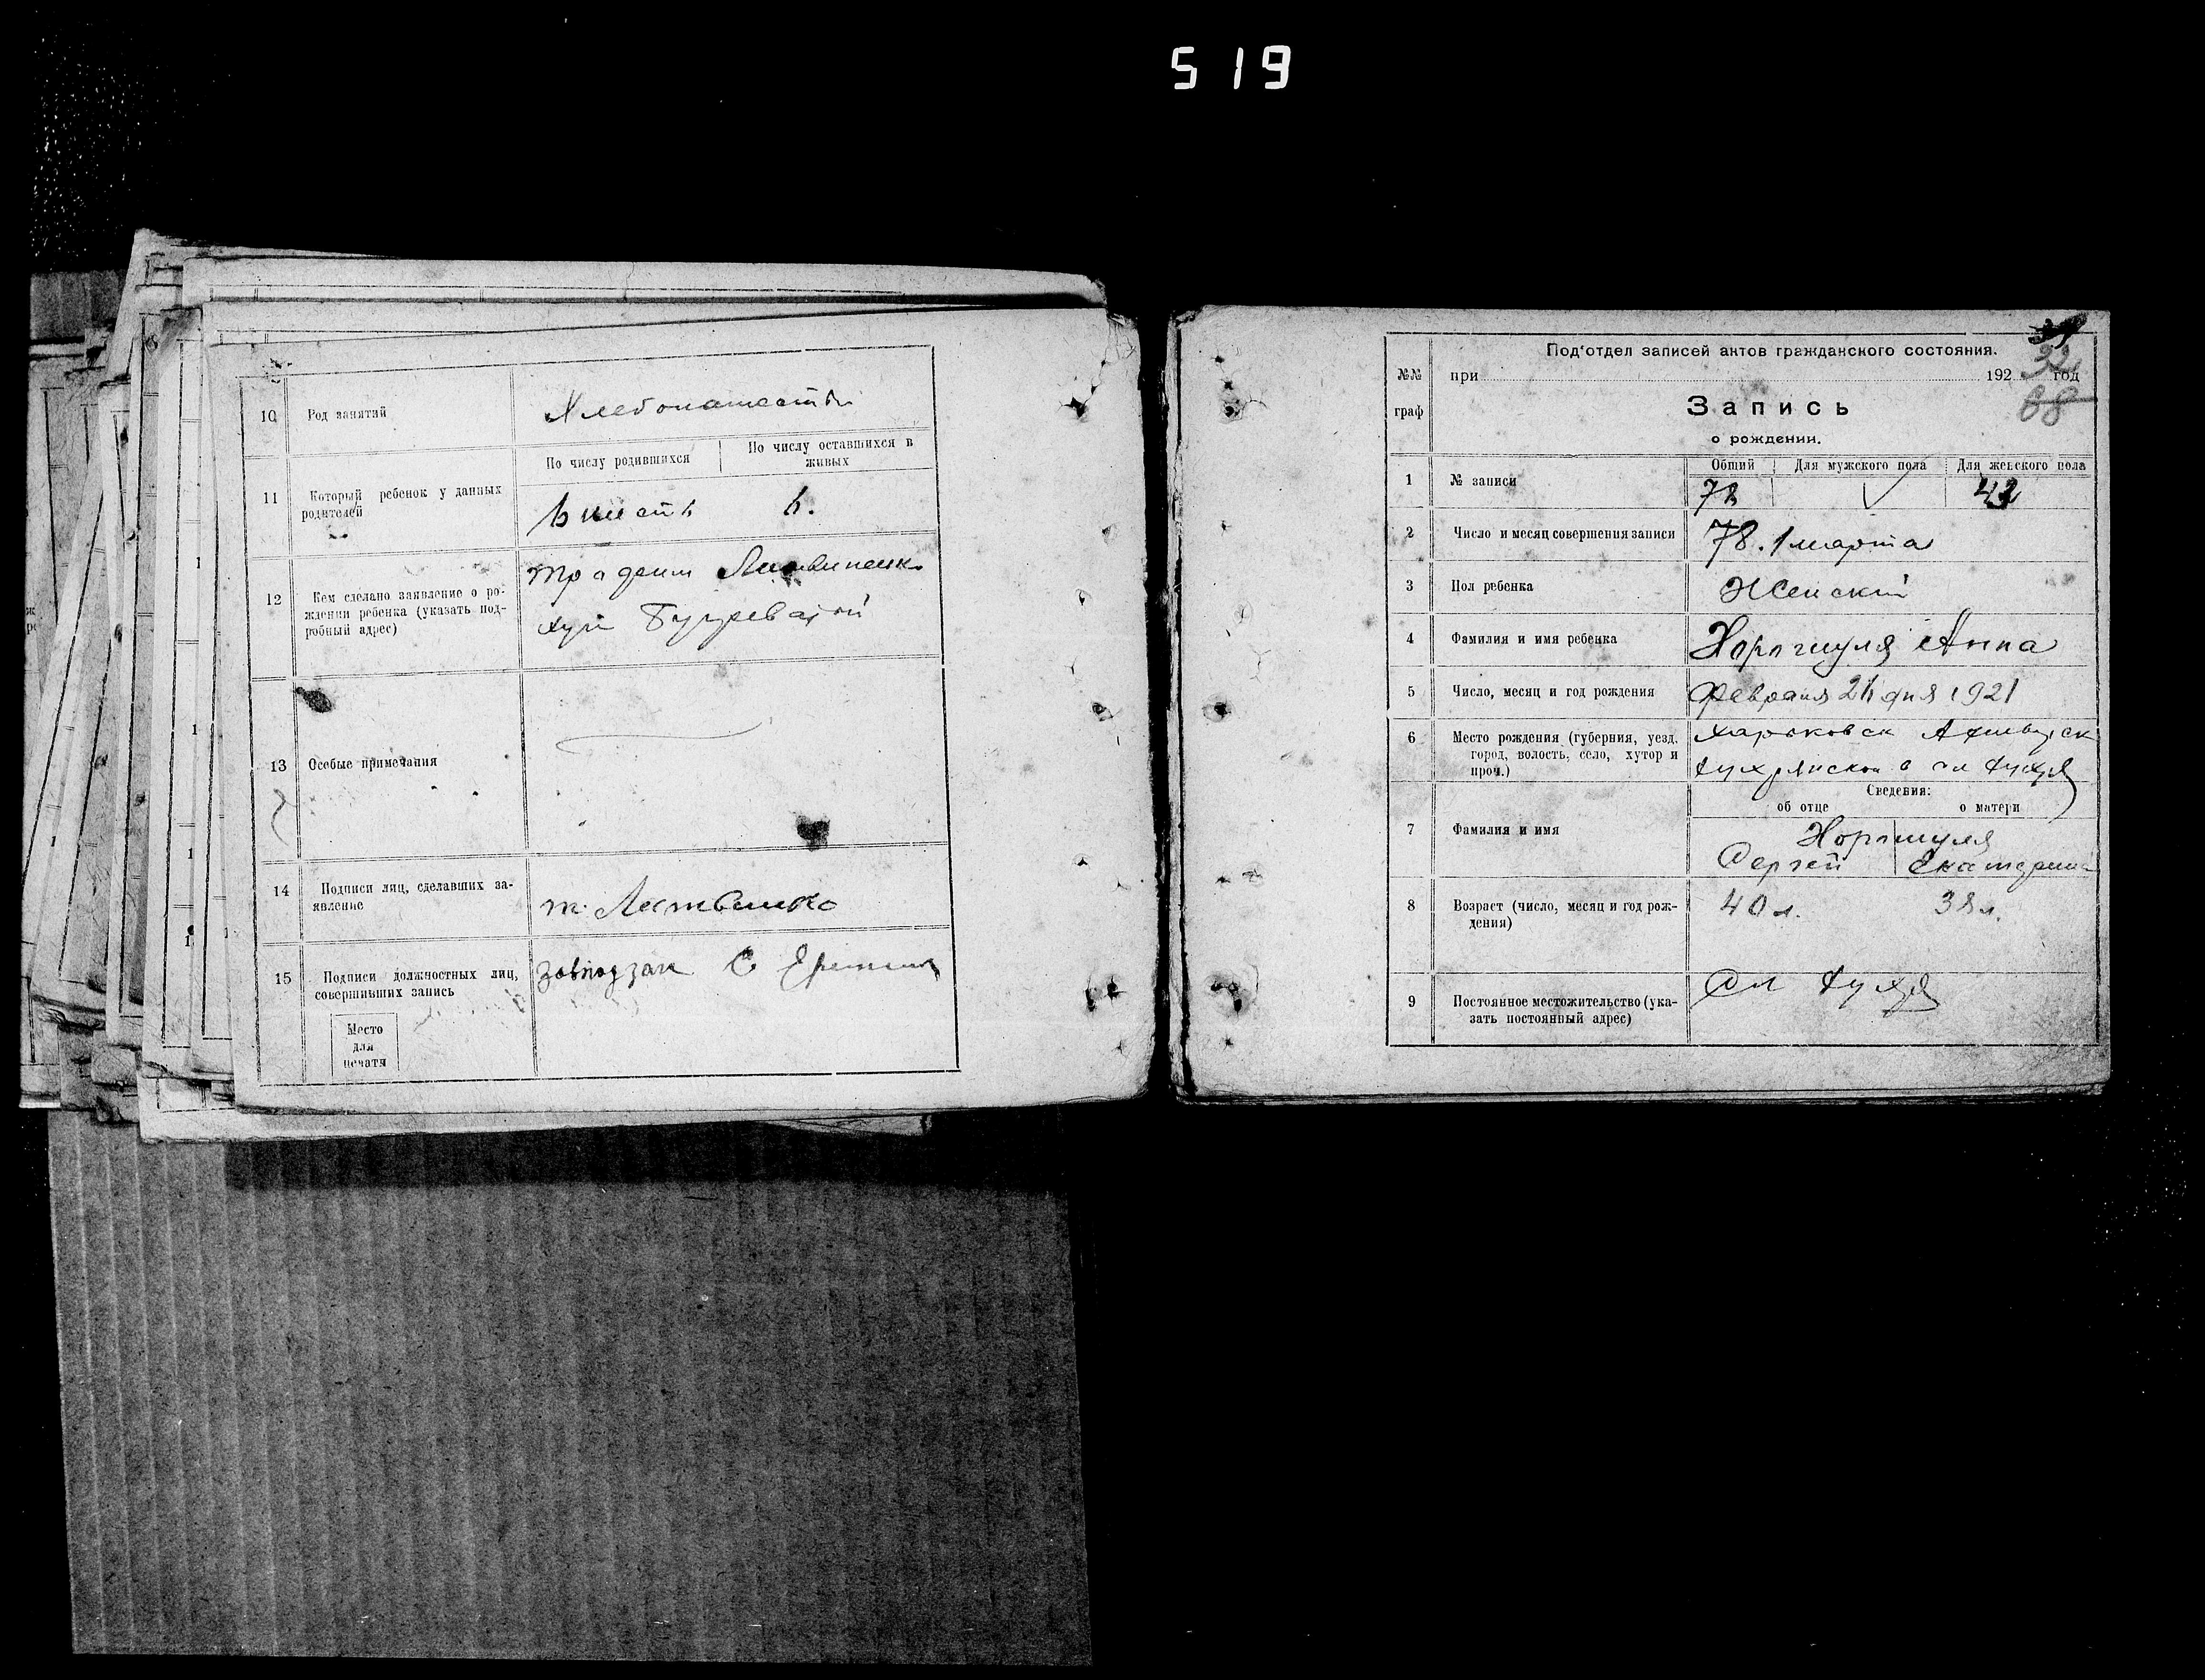 519
10
Род занятий
Хлебопашеств
11
Который ребенок у данных
родителей
По числу родившихся
По числу оставшихся в
живых
6 шесть
6.
12
Кем сделано заявление о ро-
ждении ребенка (указать под-
робный адрес)
хут
13
Особые примечания
14
Подписи лиц, сделавших за-
явление
15
Подписи должностных лиц,
совершивших запись
Завподзаг С
Место
для
печати
№№
граф
Под‘отдел записей актов гражданского состояния.
при 192 год
Запись
о рождении.
1
№ записи
Общий
Для мужского пола
Для женского пола
78
2
Число и месяц совершения записи
78. 1 марта
3
Пол ребенка
Женский
4
Фамилия и имя ребенка
Анна
5
Число, месяц и год рождения
Февраля 26 дня 1921
6
Место рождения (губерния, уезд,
город, волость, село, хутор и
проч.)
Харьковск
Сведения:
об отце
о матери
7
Фамилия и имя
Сергей
Екатерина
8
Возраст (число, месяц и год рож-
дения)
40 л.
38 л.
9
Постоянное местожительство (ука-
зать постоянный адрес)
Сл